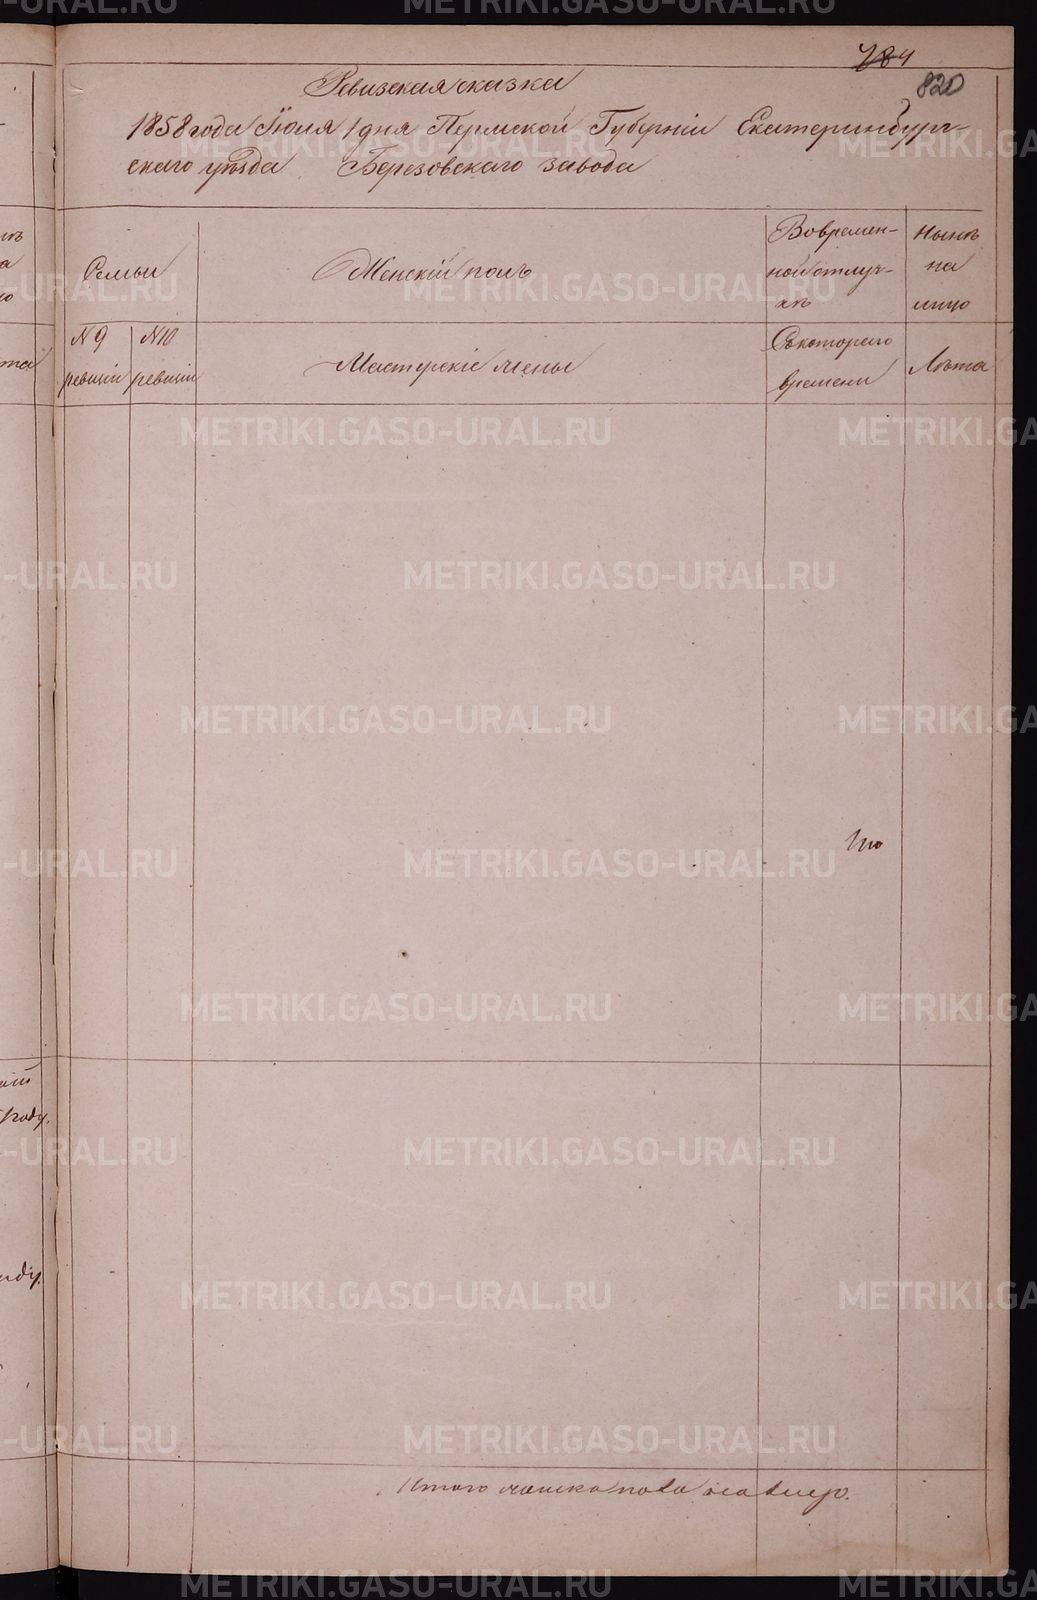 784
820
Ревизская сказка
1858 года Июля 1 дня Пермской Губернiи Екатеринбург-
скаго уѣзда Березовскаго завода
Семьи
Женскiй полъ
Вовремен-
ной отлуч-
кѣ
Нынѣ
на
лицо
№ 9
ревизiи
№ 10
ревизiи
Мастерскiе жены
Съ котораго
времени
Лѣта
году.
Итого женска пола на лицо.
METRIKI.GASO-URAL.RU